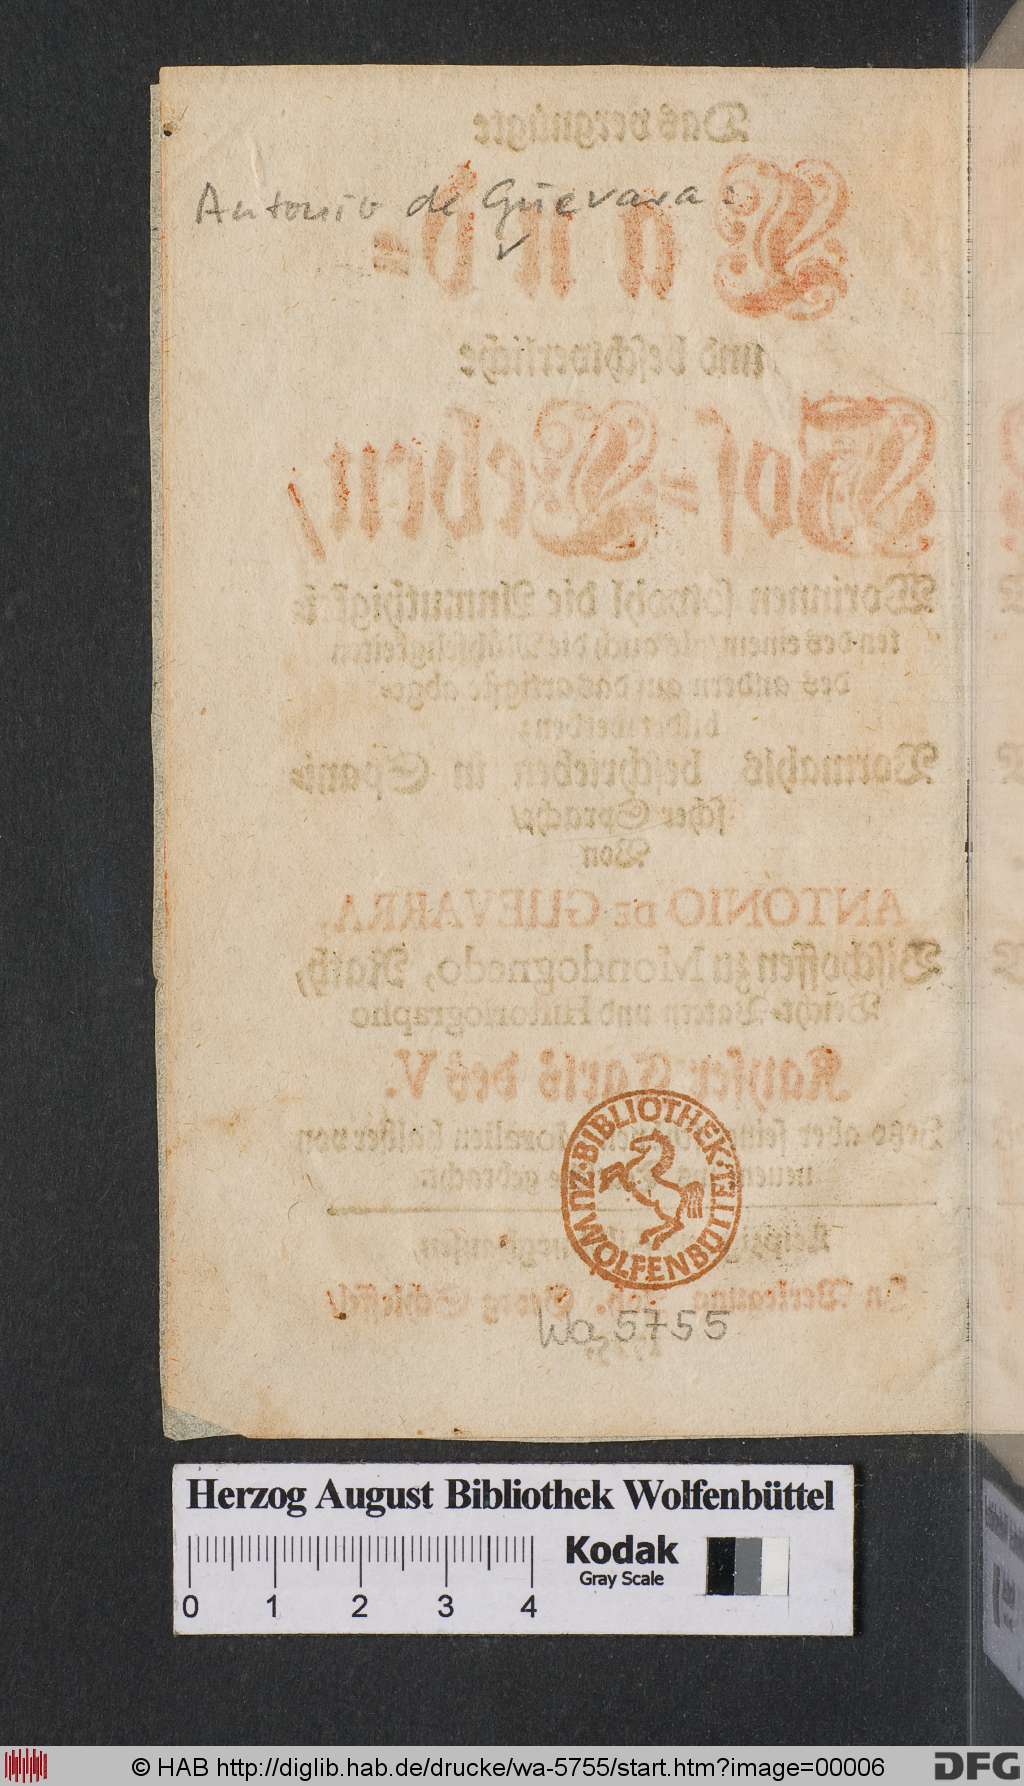 Antonio de Guevara:
Das vergnügte
Land-
und beschwerliche
Hof-Leben,
Worinnen sowohl die Anmuthigkei-
ten des einem, als auch die Mühseligkeiten
des andern auf das artigste abge-
bildet werden:
Vormahls beschrieben in Spani-
scher Sprache,
Von
ANTONIO DE GUEVARRA,
Bischoffen zu Mondognedo, Rath,
Beicht-Vatern und Historiographo
Kayser Carls des V.
Jetzo aber seiner
gebracht.
Joh. Georg
BIBLIOTHEK · ZU WOLFENBÜTTEL ·
Wa 5755
Herzog August Bibliothek Wolfenbüttel
0 1 2 3 4
Kodak
Gray Scale
© HAB http://diglib.hab.de/drucke/wa-5755/start.htm?image=00006
DFG